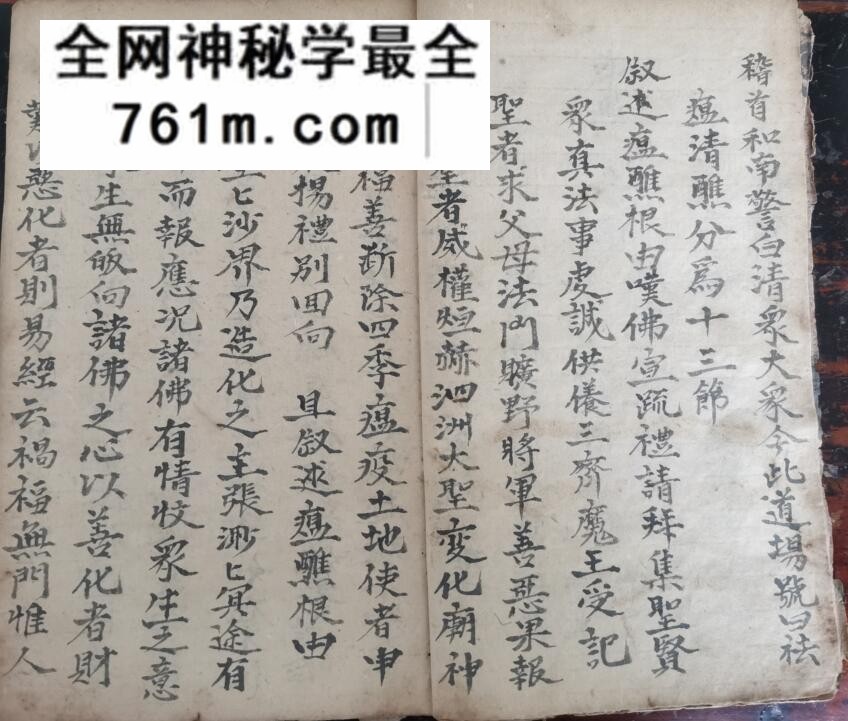 全网神秘学最全
761m.com
稽首和南警白清眾大眾今此道場號曰祛
瘟清醮分為十三節
叙述瘟醮根由嘆佛宣疏禮請拜集聖賢
眾真法事虔誠供儀三齊魔王受記
聖者求父母法門曠野將軍善惡果報
聖者威權烜赫泗洲大聖变化廟神
福善断除四季瘟疫土地使者申
揚禮別回向 且叙述瘟醮根由
匕沙界乃造化之主張渺匕冥途有
而報應况諸佛有情忮眾生之意
生無皈向諸佛之心以善化者財
以惡化者則易經云禍福無門惟人